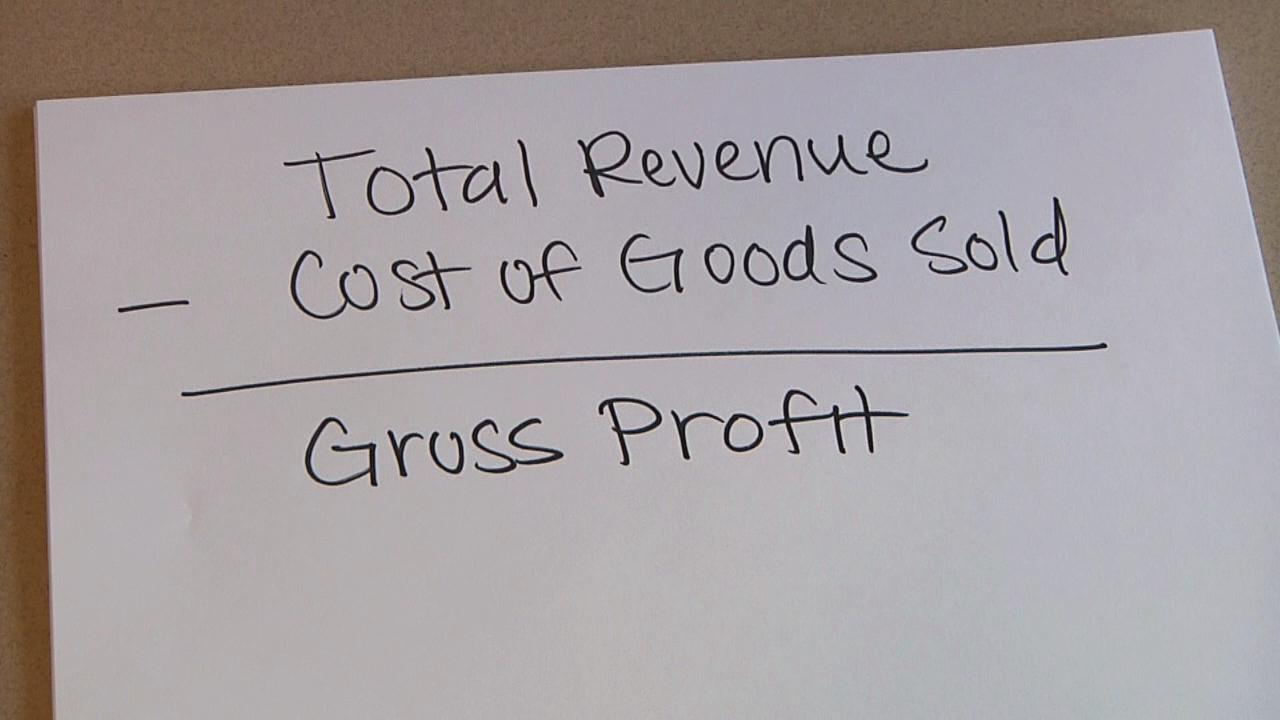 Total Revenue
- Cost of Goods Sold
Gross Profit